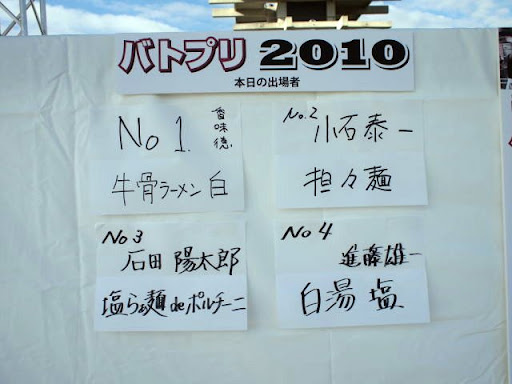 バトプリ 2010
本日の出場者
No 1. 香味徳
牛骨ラーメン 白
No.2 小石泰一
担々麺
No 3
石田 陽太郎
塩らぁ麺 de ポルチーニ
No 4
進藤雄一
白湯 塩